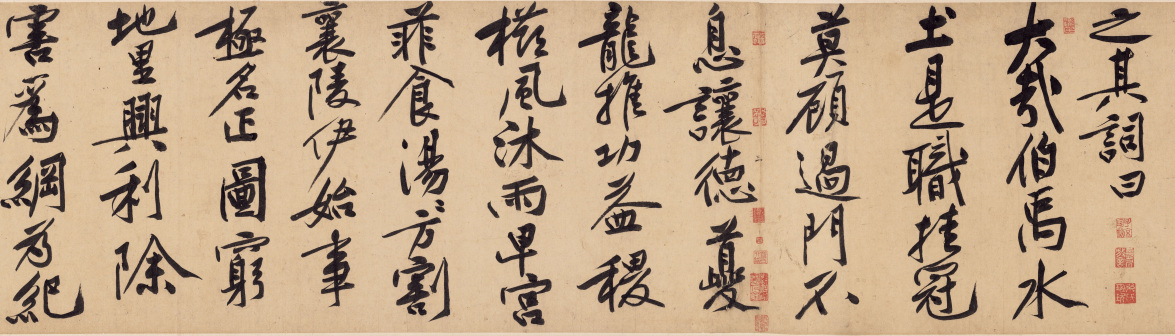 之其詞曰
大哉伯禹水
土是職挂冠
莫顧過門不
息讓德夔
龍推功益稷
櫛風沐雨卑宮
菲食湯〻方割
襄陵伊始事
極名正圖窮
地里興利除
害爲綱為紀